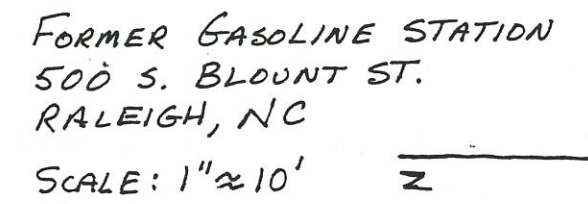 FORMER GASOLINE STATION
500 S. BLOUNT ST.
RALEIGH, NC
SCALE: 1"≈10'
Z